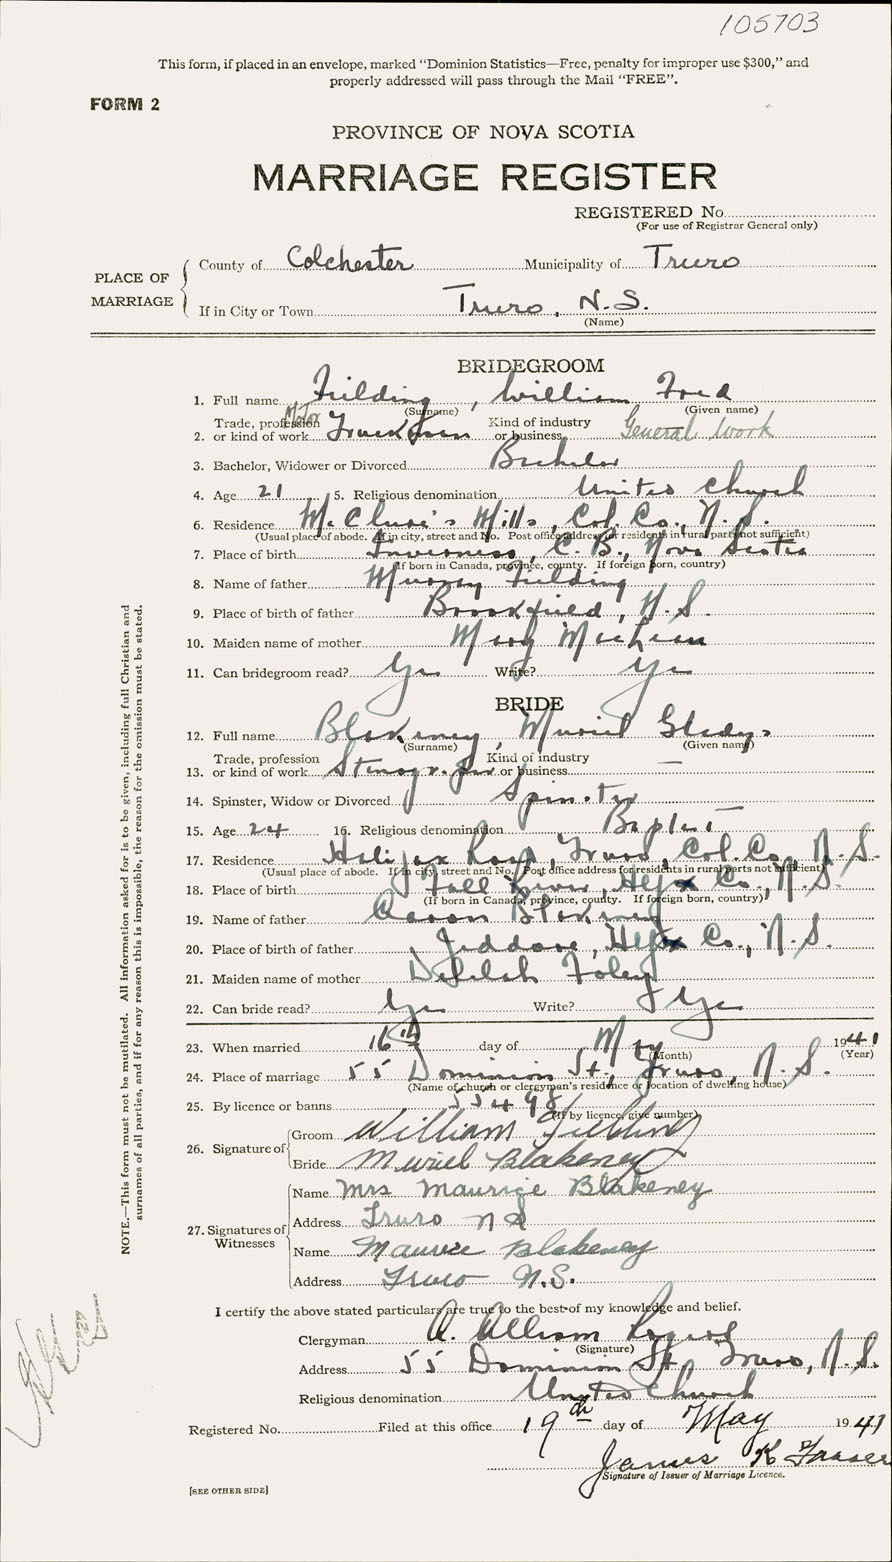 105703
This form, if placed in an envelope, marked “Dominion Statistics—Free, penalty for improper use $300,” and
properly addressed will pass through the Mail “FREE”.
FORM 2
PROVINCE OF NOVA SCOTIA
MARRIAGE REGISTER
REGISTERED No.
(For use of Registrar General only)
PLACE OF MARRIAGE
County of Colchester Municipality of Truro
If in City or Town Truro, N.S.
(Name)
BRIDEGROOM
1. Full name Fielding, William Fred
(Surname) (Given name)
Trade, profession Motor Kind of industry
2. or kind of work Truckman or business General Work
3. Bachelor, Widower or Divorced Bachelor
4. Age 21 5. Religious denomination United Church
6. Residence McClure's Mills, Col. Co., N.S.
(Usual place of abode. If in city, street and No. Post office address for residents in rural parts not sufficient)
7. Place of birth Inverness, C.B., Nova Scotia
(If born in Canada, province, county. If foreign born, country)
8. Name of father Murray Fielding
9. Place of birth of father Brookfield, N.S.
10. Maiden name of mother Mary
11. Can bridegroom read? Yes Write? Yes
BRIDE
12. Full name Blakeney, Muriel Gladys
(Surname) (Given name)
Trade, profession Kind of industry
13. or kind of work Stenographer or business —
14. Spinster, Widow or Divorced Spinster
15. Age 24 16. Religious denomination Baptist
17. Residence Halifax Road, Truro, Col. Co., N.S.
(Usual place of abode. If in city, street and No. Post office address for residents in rural parts not sufficient)
18. Place of birth Fall River, Hlfx Co., N.S.
(If born in Canada, province, county. If foreign born, country)
19. Name of father Aaron Blakeney
20. Place of birth of father Jeddore, Hlfx Co., N.S.
21. Maiden name of mother Delilah Foley
22. Can bride read? Yes Write? Yes
23. When married 16th day of May 1941
(Month) (Year)
24. Place of marriage 55 Dominion St., Truro, N.S.
(Name of church or clergyman's residence or location of dwelling house)
25. By licence or banns 55498
(If by licence, give number)
26. Signature of Groom William Fielding
Bride Muriel Blakeney
27. Signatures of Witnesses
Name Mrs Maurice Blakeney
Address Truro N S
Name Maurice Blakeney
Address Truro N.S.
I certify the above stated particulars are true to the best of my knowledge and belief.
Clergyman A. William Rogers
(Signature)
Address 55 Dominion St., Truro, N.S.
Religious denomination United Church
Registered No. Filed at this office 19th day of May 1941
James K Fraser
Signature of Issuer of Marriage Licence.
[SEE OTHER SIDE]
NOTE.—This form must not be mutilated. All information asked for is to be given, including full Christian and
surnames of all parties, and if for any reason this is impossible, the reason for the omission must be stated.